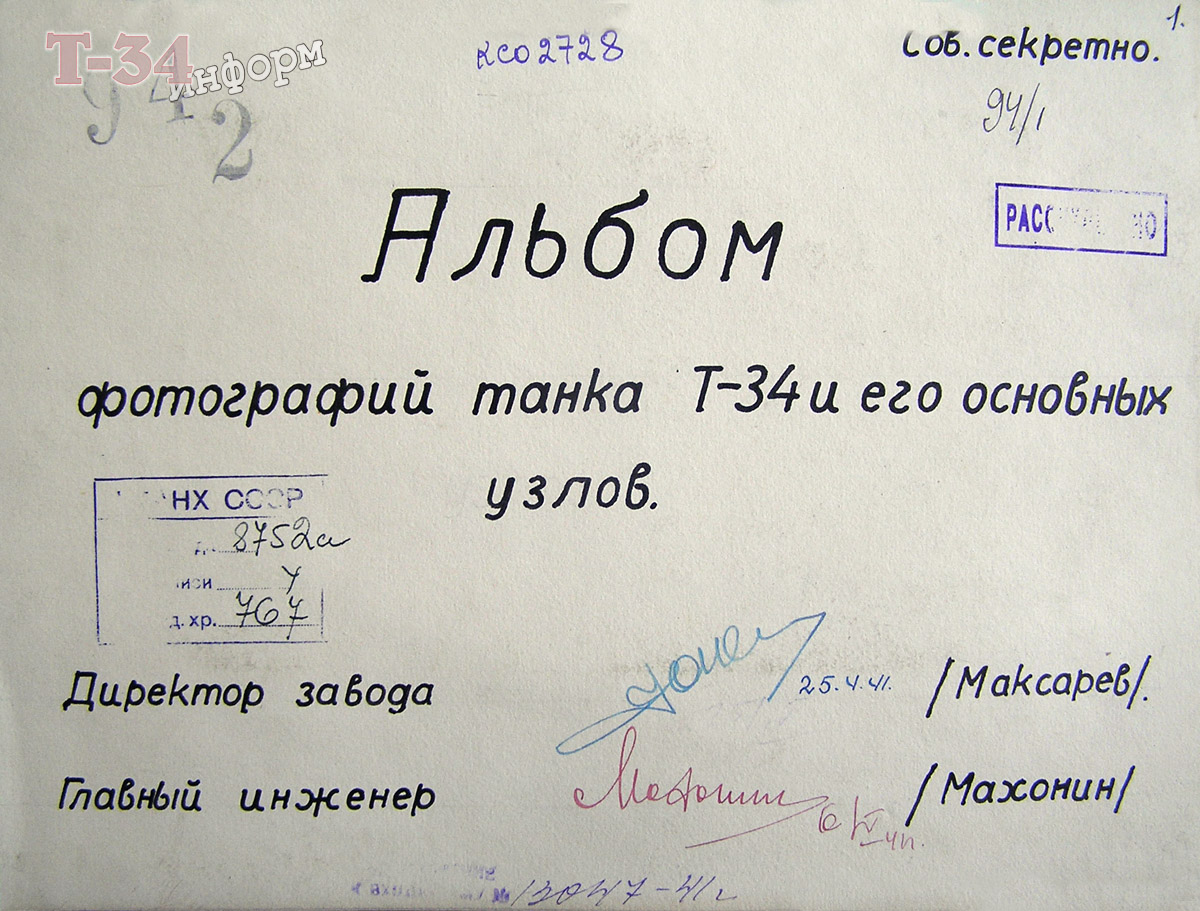 1.
Т-34
информ
ксо 2728
Соб. секретно.
942
94/1
РАСС НО
Альбом
фотографий танка Т-34 и его основных
узлов.
АНХ СССР
8752а
иси 4
д. хр. 767
Директор завода 25.4.41. /Максарев/.
Главный инженер Махонин /Махонин/
13047-41г